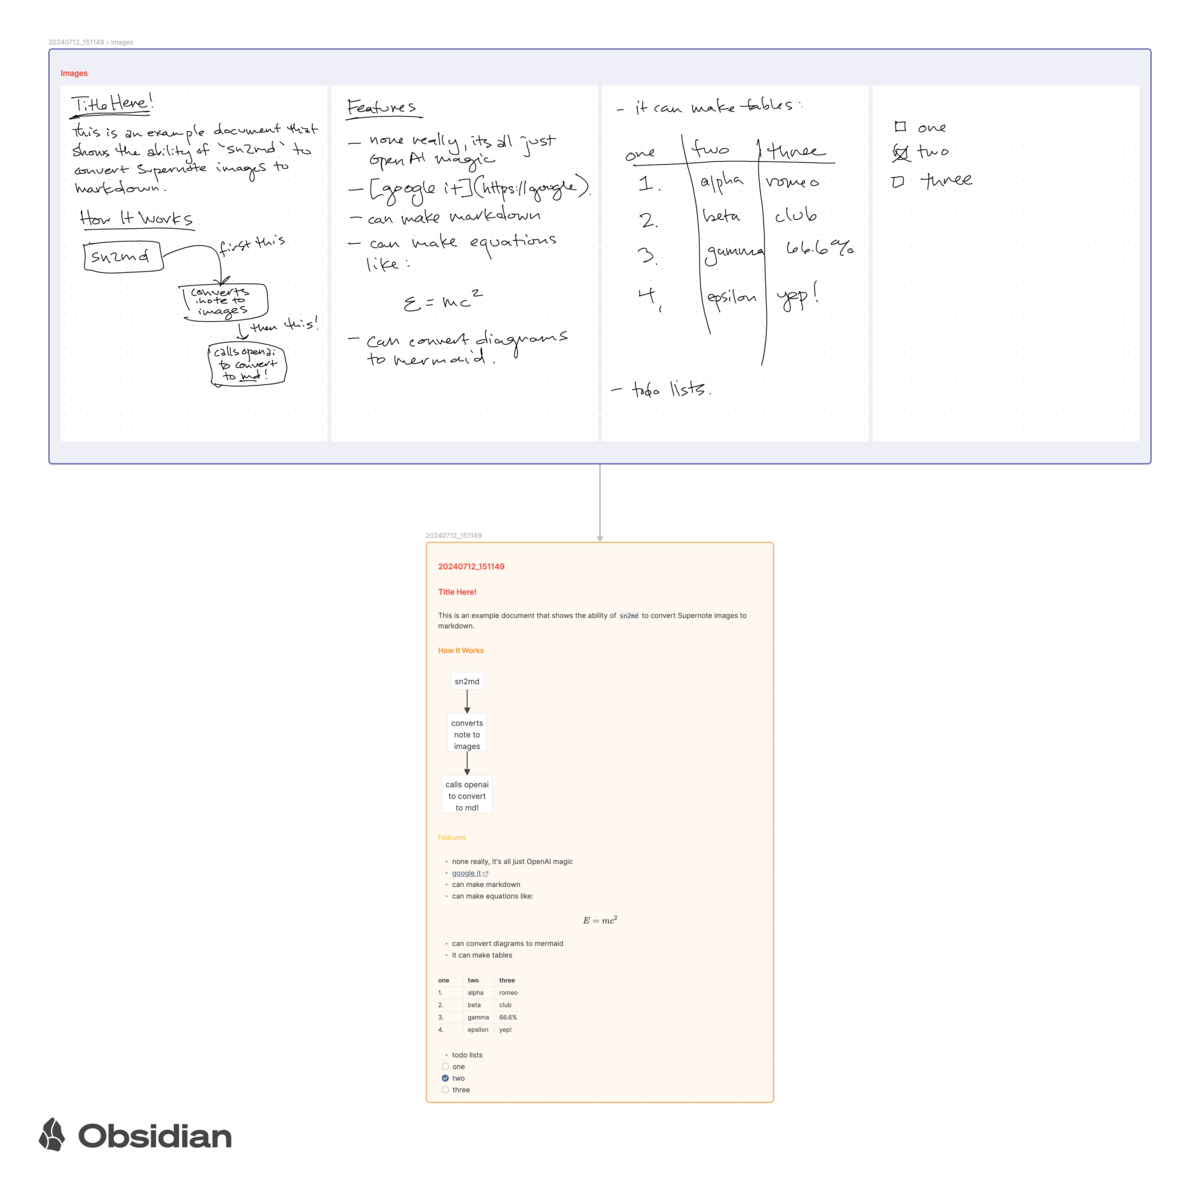 20240712_151149 › Images
Images
Title Here!
This is an example document that
shows the ability of `sn2md` to
convert Supernote images to
markdown.
How It Works
sn2md
first this
converts
note to
images
then this!
calls openai
to convert
to md!
Features
- none really, its all just
OpenAI magic
- [google it](https://google).
- can make markdown
- can make equations
like:
E = mc²
- can convert diagrams
to mermaid.
- it can make tables:
one two three
1. alpha romeo
2. beta club
3. gamma 66.6%
4. epsilon yep!
- todo lists.
☐ one
☒ two
☐ three
20240712_151149
20240712_151149
Title Here!
This is an example document that shows the ability of sn2md to convert Supernote images to
markdown.
How It Works
sn2md
converts
note to
images
calls openai
to convert
to md!
Features
• none really, it's all just OpenAI magic
• google it
• can make markdown
• can make equations like:
E = mc²
• can convert diagrams to mermaid
• it can make tables
one two three
1. alpha romeo
2. beta club
3. gamma 66.6%
4. epsilon yep!
• todo lists
one
two
three
Obsidian